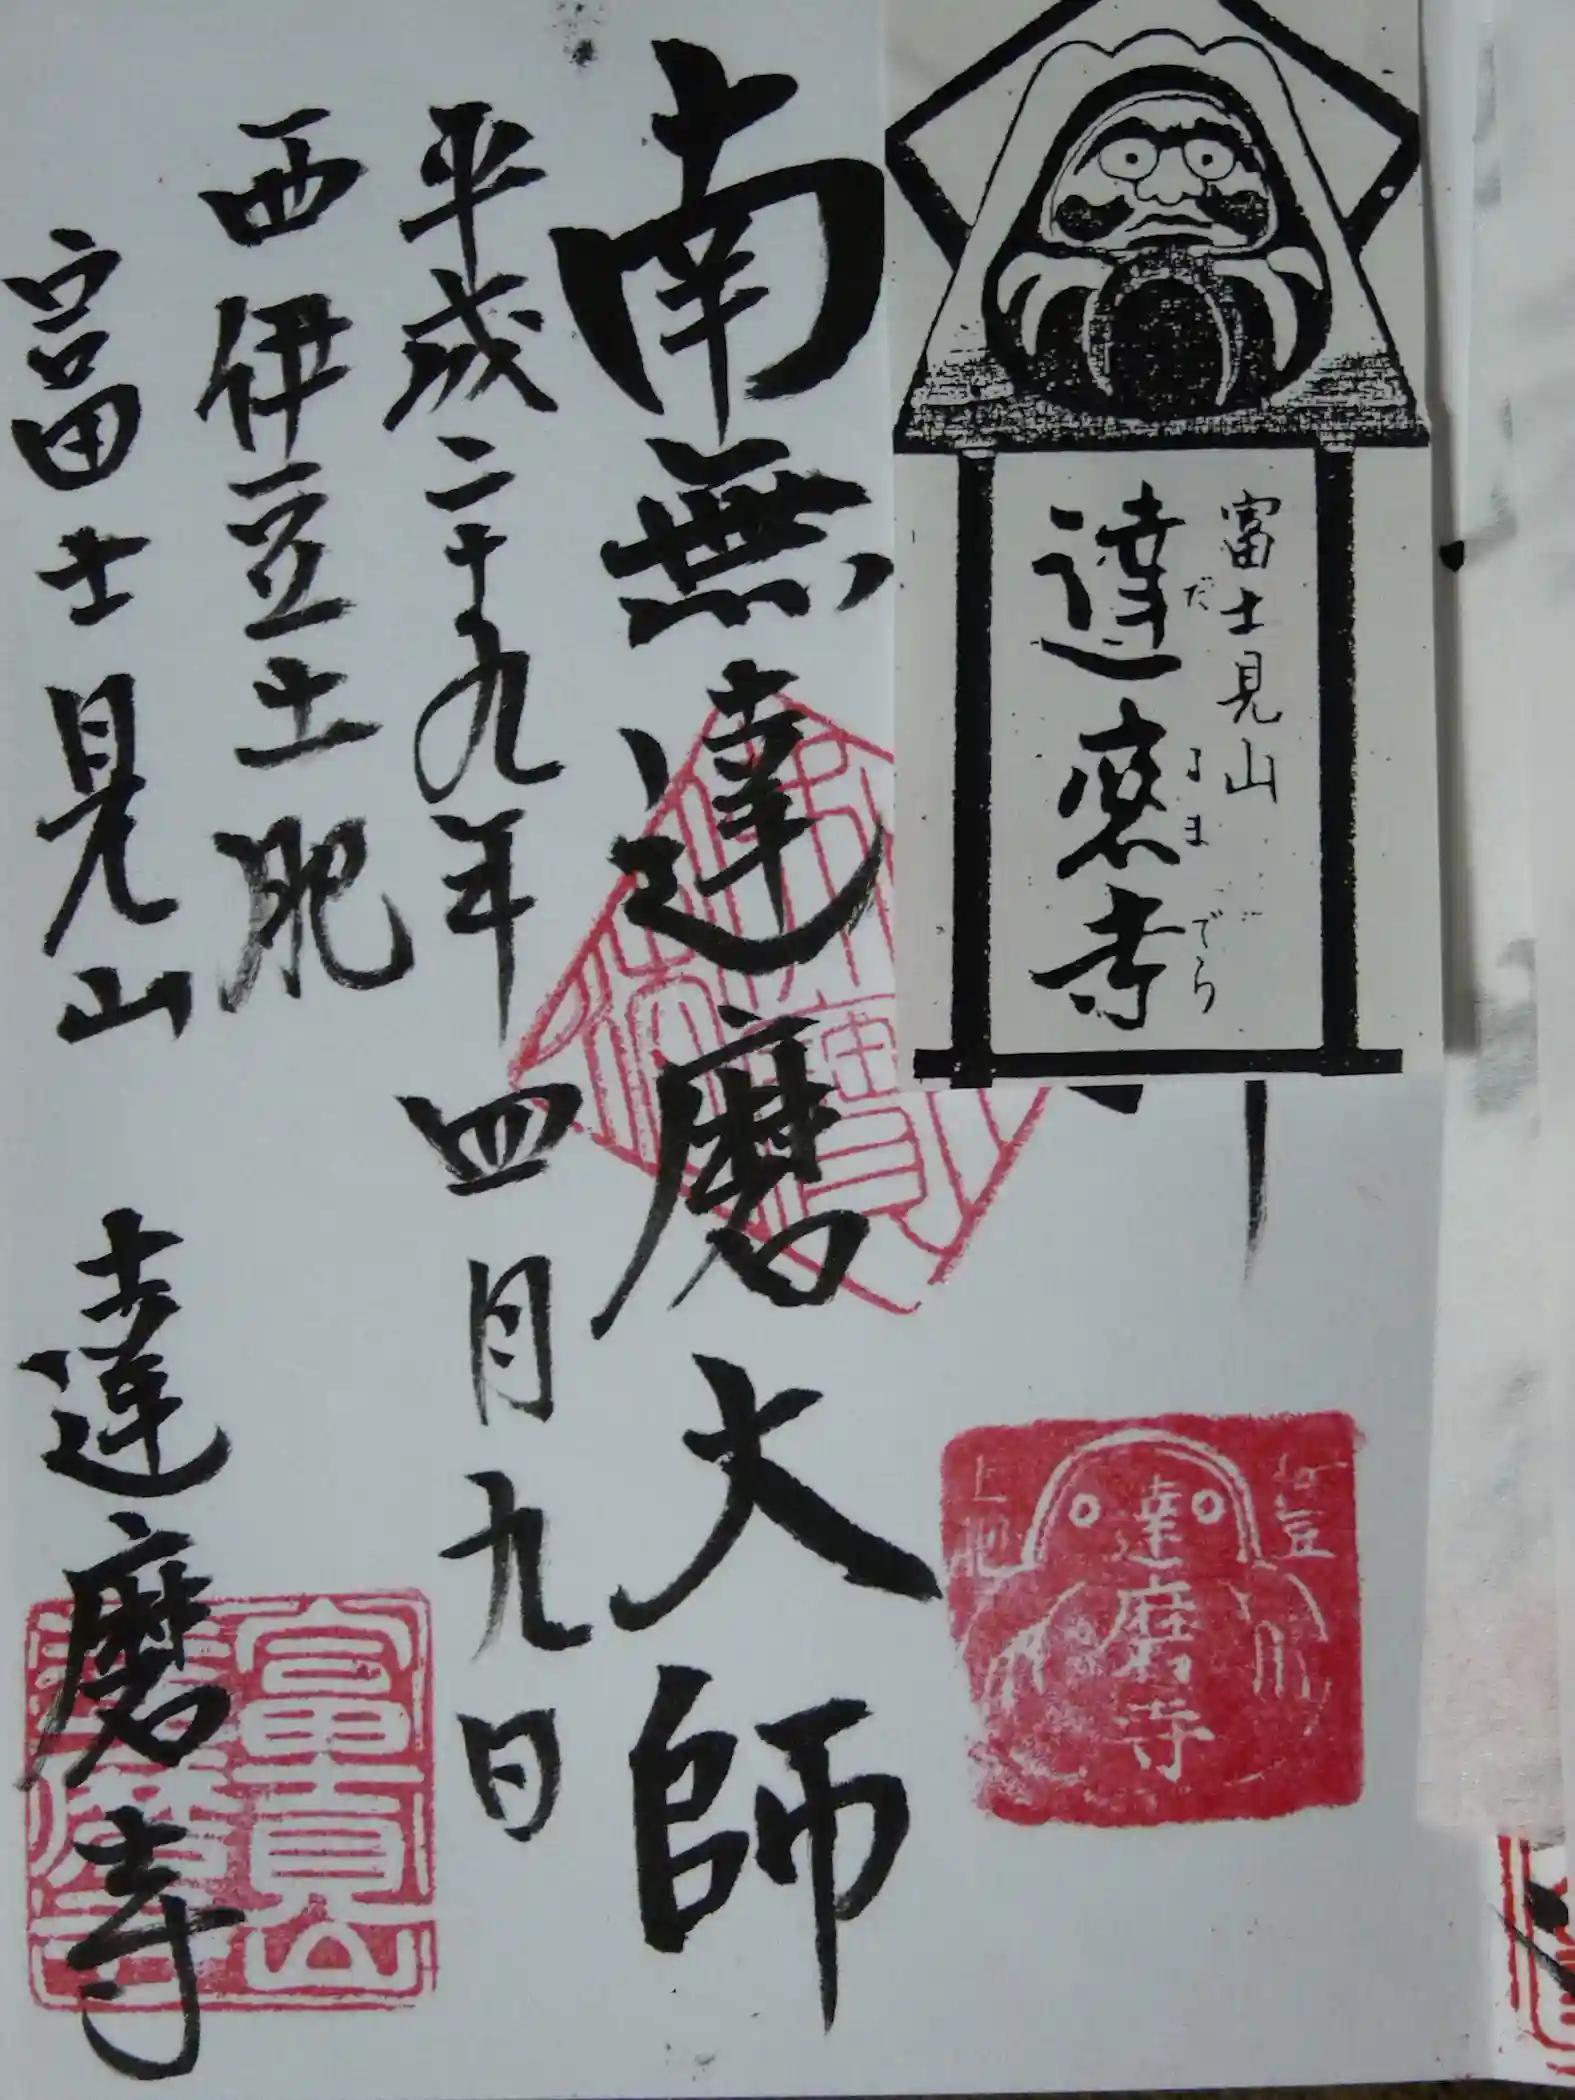 富士見山
達磨寺
だ
るま
でら
南無達磨大師
平成二十九年 四月九日
西伊豆土肥
富士見山 達磨寺
伊豆
達磨寺
土肥
富貝山
達磨寺